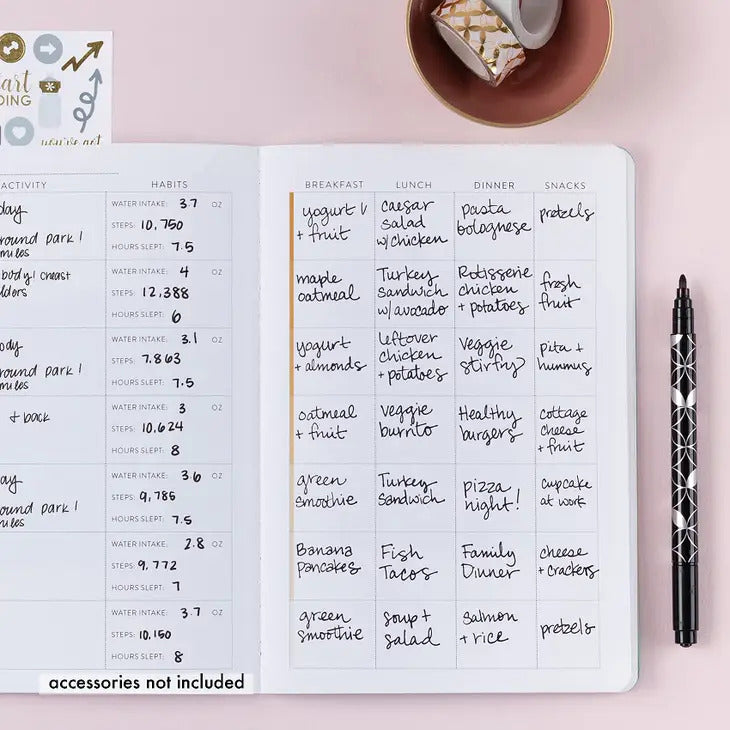 you've got
ACTIVITY HABITS
WATER INTAKE: 3.7 OZ
STEPS: 10,750
round park 1
HOURS SLEPT: 7.5
miles
WATER INTAKE: 4 OZ
body/ chest
STEPS: 12,388
HOURS SLEPT: 6
WATER INTAKE: 3.1 OZ
STEPS: 7,863
round park 1
HOURS SLEPT: 7.5
miles
WATER INTAKE: 3 OZ
+ back
STEPS: 10,624
HOURS SLEPT: 8
WATER INTAKE: 3.6 OZ
STEPS: 9,785
round park 1
HOURS SLEPT: 7.5
miles
WATER INTAKE: 2.8 OZ
STEPS: 9,772
HOURS SLEPT: 7
WATER INTAKE: 3.7 OZ
STEPS: 10,150
HOURS SLEPT: 8
BREAKFAST LUNCH DINNER SNACKS
yogurt
+ fruit
caesar
salad
w/chicken
pasta
bolognese
pretzels
maple
oatmeal
Turkey
Sandwich
w/ avocado
Rotisserie
chicken
+ potatoes
fresh
fruit
yogurt
+ almonds
leftover
chicken
+ potatoes
veggie
stirfry
pita +
hummus
oatmeal
+ fruit
veggie
burrito
Healthy
burgers
cottage
cheese
+ fruit
green
smoothie
Turkey
Sandwich
pizza
night!
cupcake
at work
Banana
pancakes
Fish
Tacos
Family
Dinner
cheese
+ crackers
green
smoothie
soup +
salad
Salmon
+ rice
pretzels
accessories not included